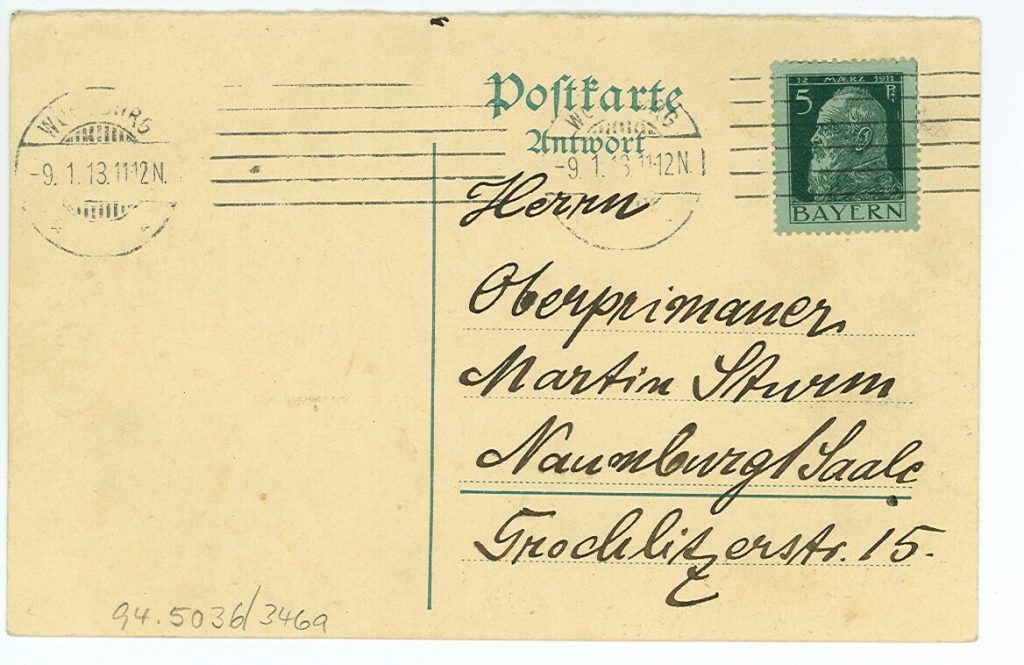 Postkarte
Antwort
-9. 1. 13. 11-12 N.
-9. 1. 13. 11-12 N.
12 MÄRZ 1911
5 Pf.
BAYERN
Herrn
Oberprimaner
Martin Sturm
Naumburg/Saale
Grochlitzerstr. 15.
94.5036/346a